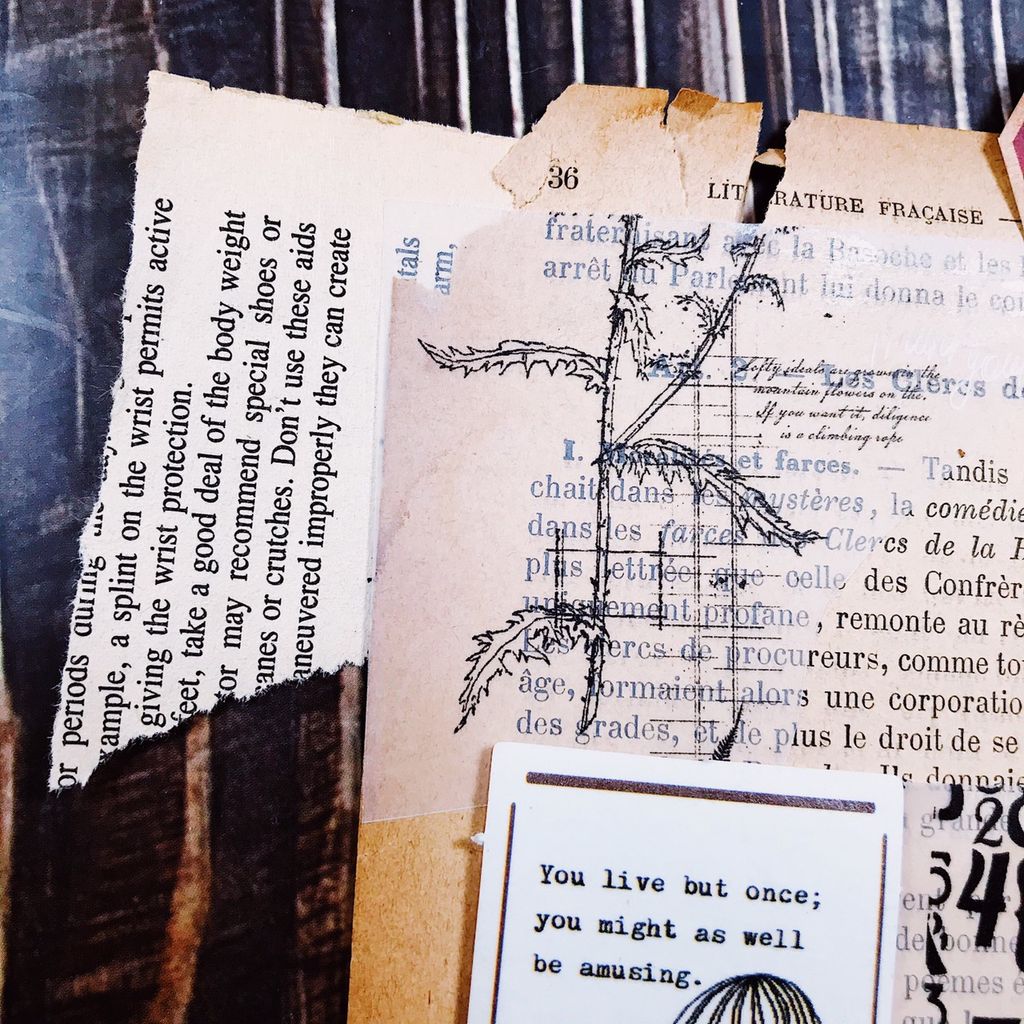 or periods during the
xample, a splint on the wrist permits active
giving the wrist protection.
feet, take a good deal of the body weight
or may recommend special shoes or
anes or crutches. Don't use these aids
aneuvered improperly they can create
tals
arm,
36
LITERATURE FRAÇAISE —
fraternisant avec la Basoche et les
arrêt du Parlement lui donna le
Art. 2. — Les Clercs
Lofty ideals are grown in the
mountain flowers on the,
If you want it, diligence
is a climbing rope
I. Moralités et farces. — Tandis
chait dans les mystères, la comédie
dans les farces des Clercs de la
plus lettrée que celle des Confrèr
uniquement profane, remonte au
Les clercs de procureurs, comme
âge, formaient alors une corporatio
des grades, et de plus le droit de se
Ils donnaie
You live but once;
you might as well
be amusing.
2
5 4
3
poèmes